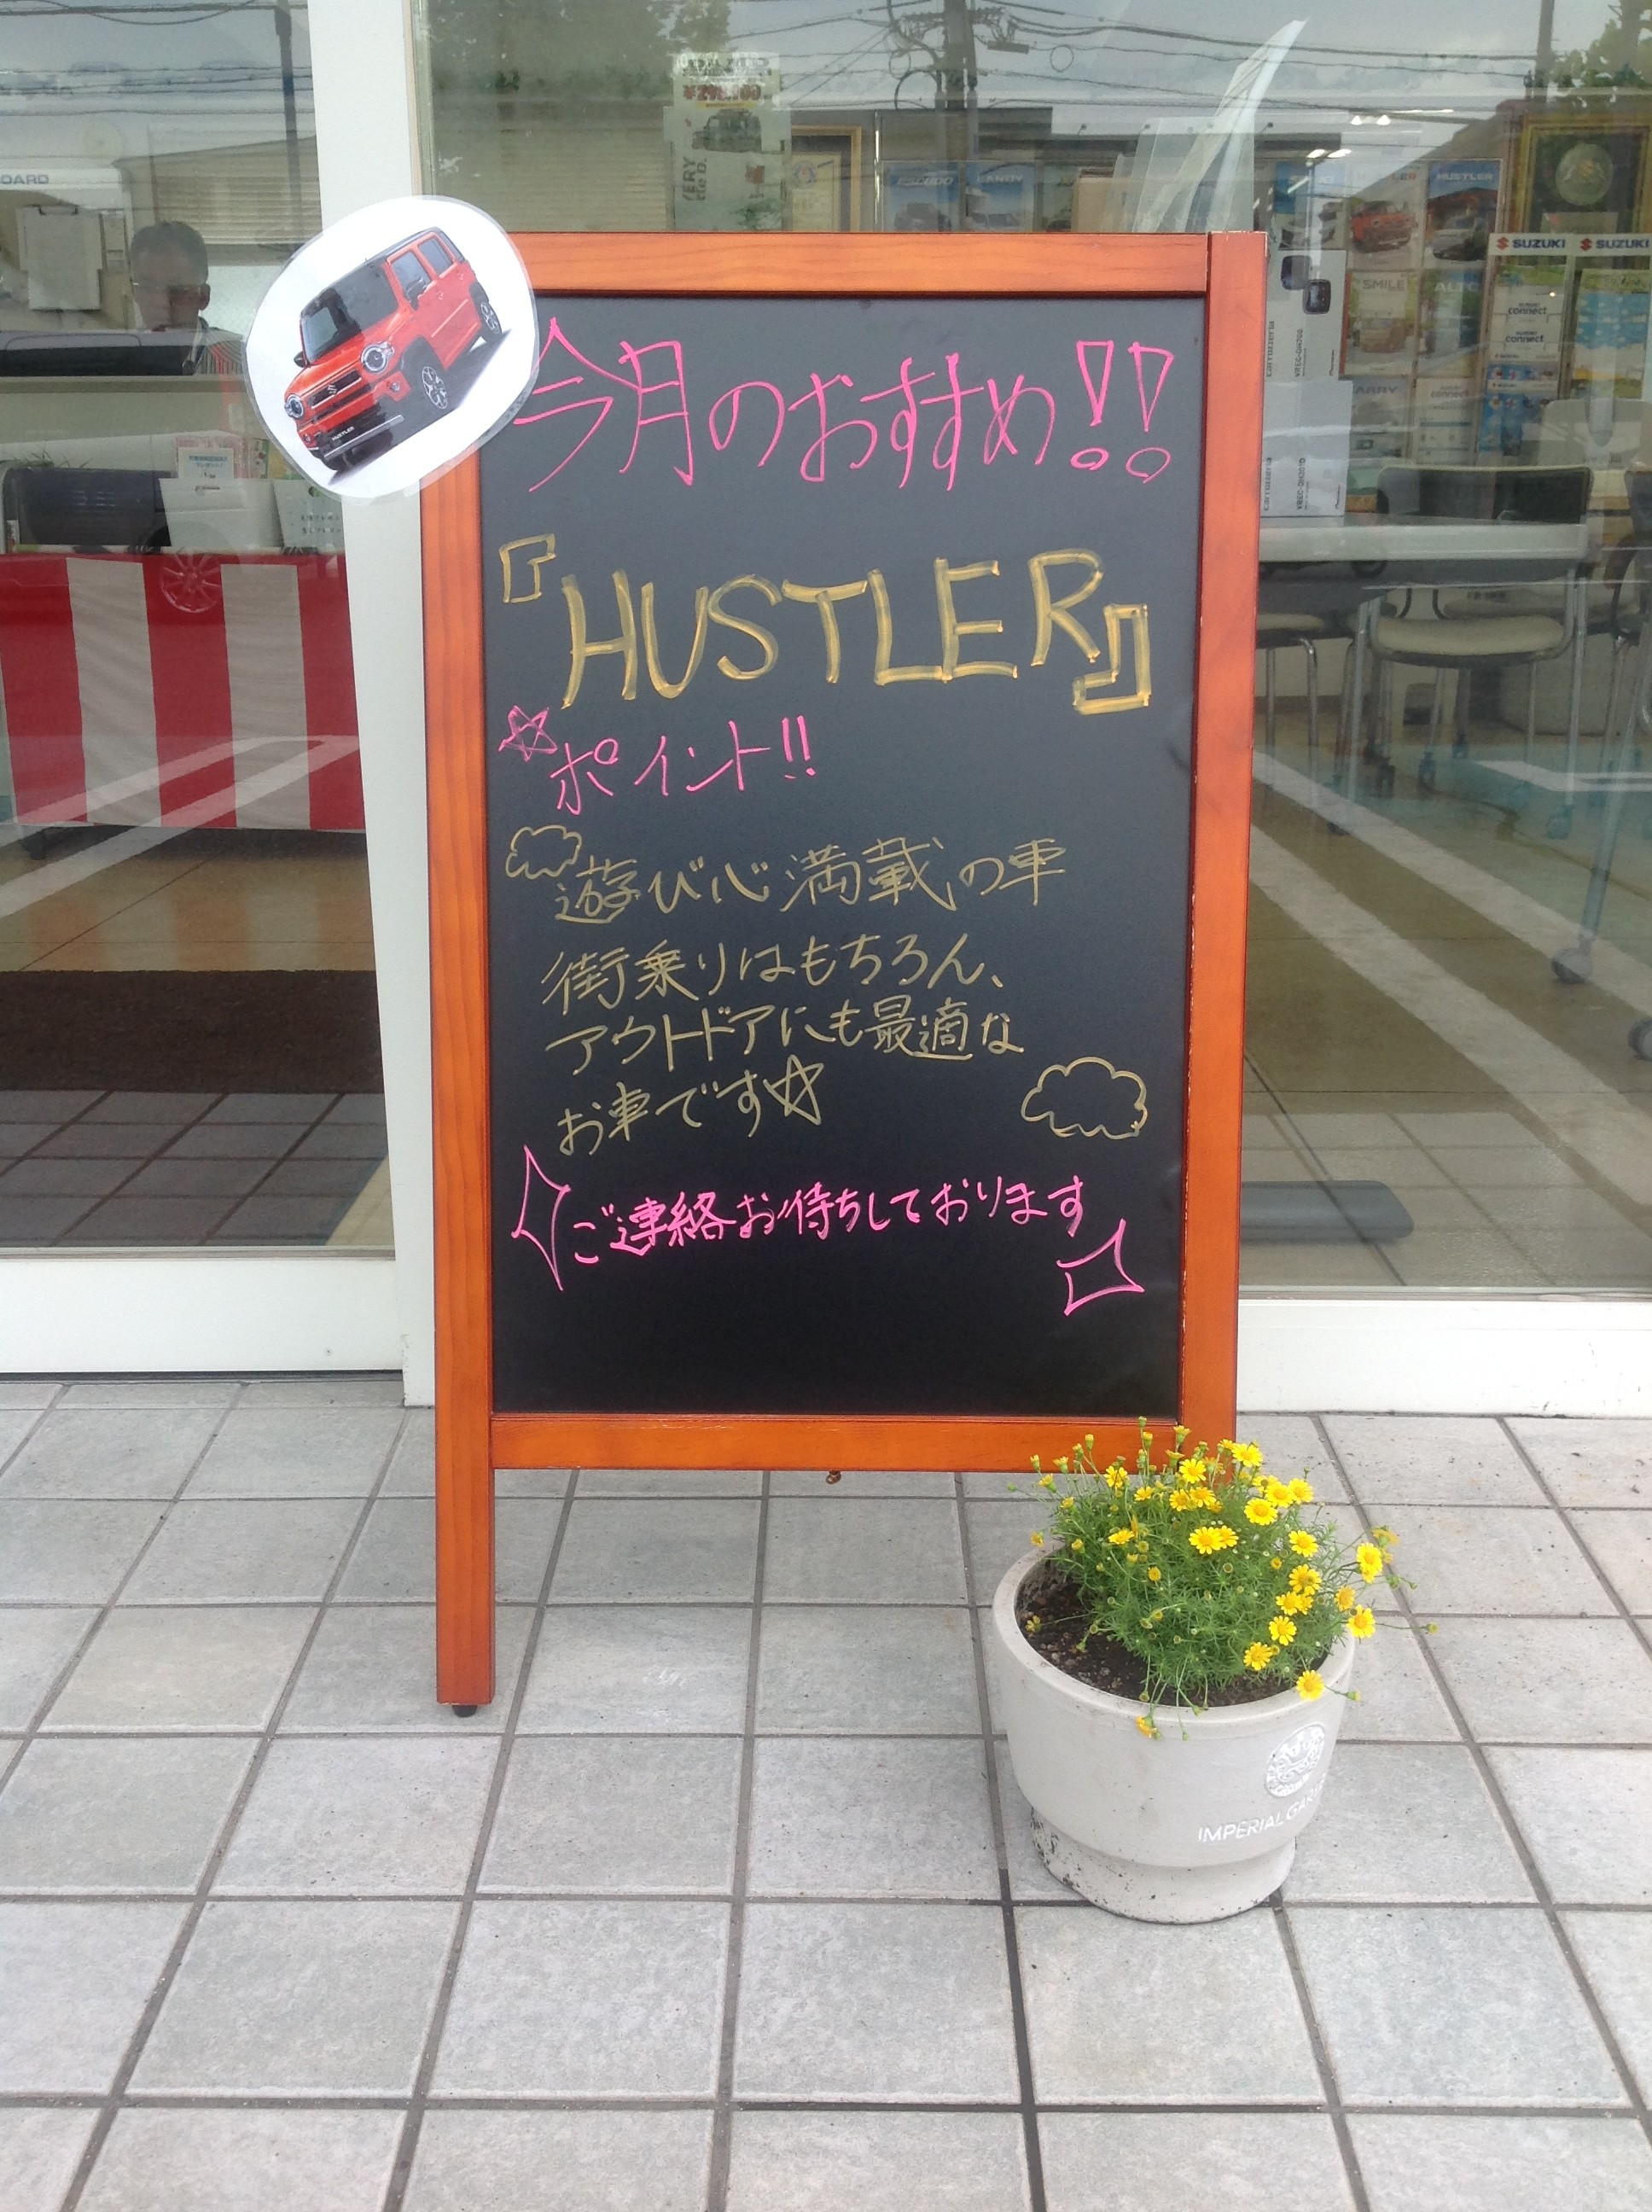 今月のおすすめ!!
『HUSTLER』
☆ポイント!!
遊び心満載の車
街乗りはもちろん、
アウトドアにも最適な
お車です☆
ご連絡お待ちしております
HUSTLER
SUZUKI
SUZUKI
SMILE
ALTO
HUSTLER
LANDY
connect
connect
carrozzeria
IMPERIAL